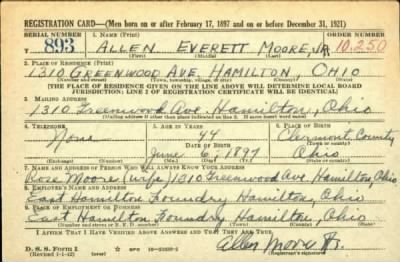 REGISTRATION CARD—(Men born on or after February 17, 1897 and on or before December 31, 1921)
SERIAL NUMBER 1. NAME (Print) ORDER NUMBER
893 ALLEN EVERETT MOORE, JR. 10,250
(First) (Middle) (Last)
2. PLACE OF RESIDENCE (Print)
1310 GREENWOOD AVE. HAMILTON OHIO
(Number and street) (Town, township, village, or city) (County) (State)
[THE PLACE OF RESIDENCE GIVEN ON THE LINE ABOVE WILL DETERMINE LOCAL BOARD
JURISDICTION; LINE 2 OF REGISTRATION CERTIFICATE WILL BE IDENTICAL]
3. MAILING ADDRESS
1310 Greenwood Ave. Hamilton, Ohio
[Mailing address if other than place indicated on line 2. If same insert word same]
4. TELEPHONE 5. AGE IN YEARS 6. PLACE OF BIRTH
None 44 Clermont County
DATE OF BIRTH
June 6, 1897 Ohio
(Exchange) (Number) (Mo.) (Day) (Yr.) (State or country)
7. NAME AND ADDRESS OF PERSON WHO WILL ALWAYS KNOW YOUR ADDRESS
Rose Moore (wife) 1310 Greenwood Ave, Hamilton, Ohio
8. EMPLOYER'S NAME AND ADDRESS
East Hamilton Foundry Hamilton, Ohio
9. PLACE OF EMPLOYMENT OR BUSINESS
East Hamilton Foundry Hamilton, Ohio
(Number and street or R. F. D. number) (Town) (County) (State)
I AFFIRM THAT I HAVE VERIFIED ABOVE ANSWERS AND THAT THEY ARE TRUE.
D. S. S. Form 1
(Revised 1-1-42) (over)
Allen Moore Jr.
(Registrant's signature)